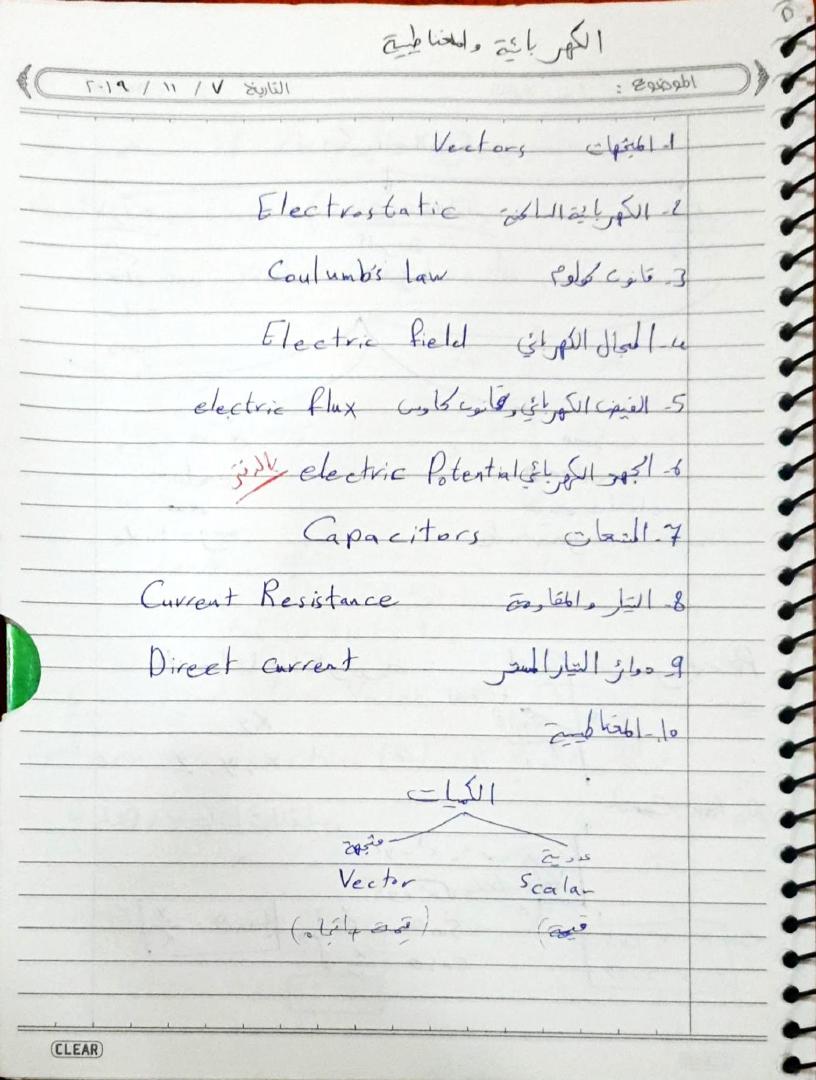 الكهربائية والمغناطيسية
الموضوع : التاريخ ٧ / ١١ / ٢٠١٩
1- المتجهات Vectors
2- الكهربائية الساكنة Electrostatic
3- قانون كولوم Coulumb's law
4- المجال الكهربائي Electric field
5- الفيض الكهربائي وقانون كاوس electric flux
6- الجهد الكهربائي electric Potential بالدفتر
7- المتسعات Capacitors
8- التيار والمقاومة Current Resistance
9- دوائر التيار المستمر Direct current
10- المغناطيسية
الكميات
عددية متجهة
Scalar Vector
(قيمة) (قيمة + اتجاه)
CLEAR